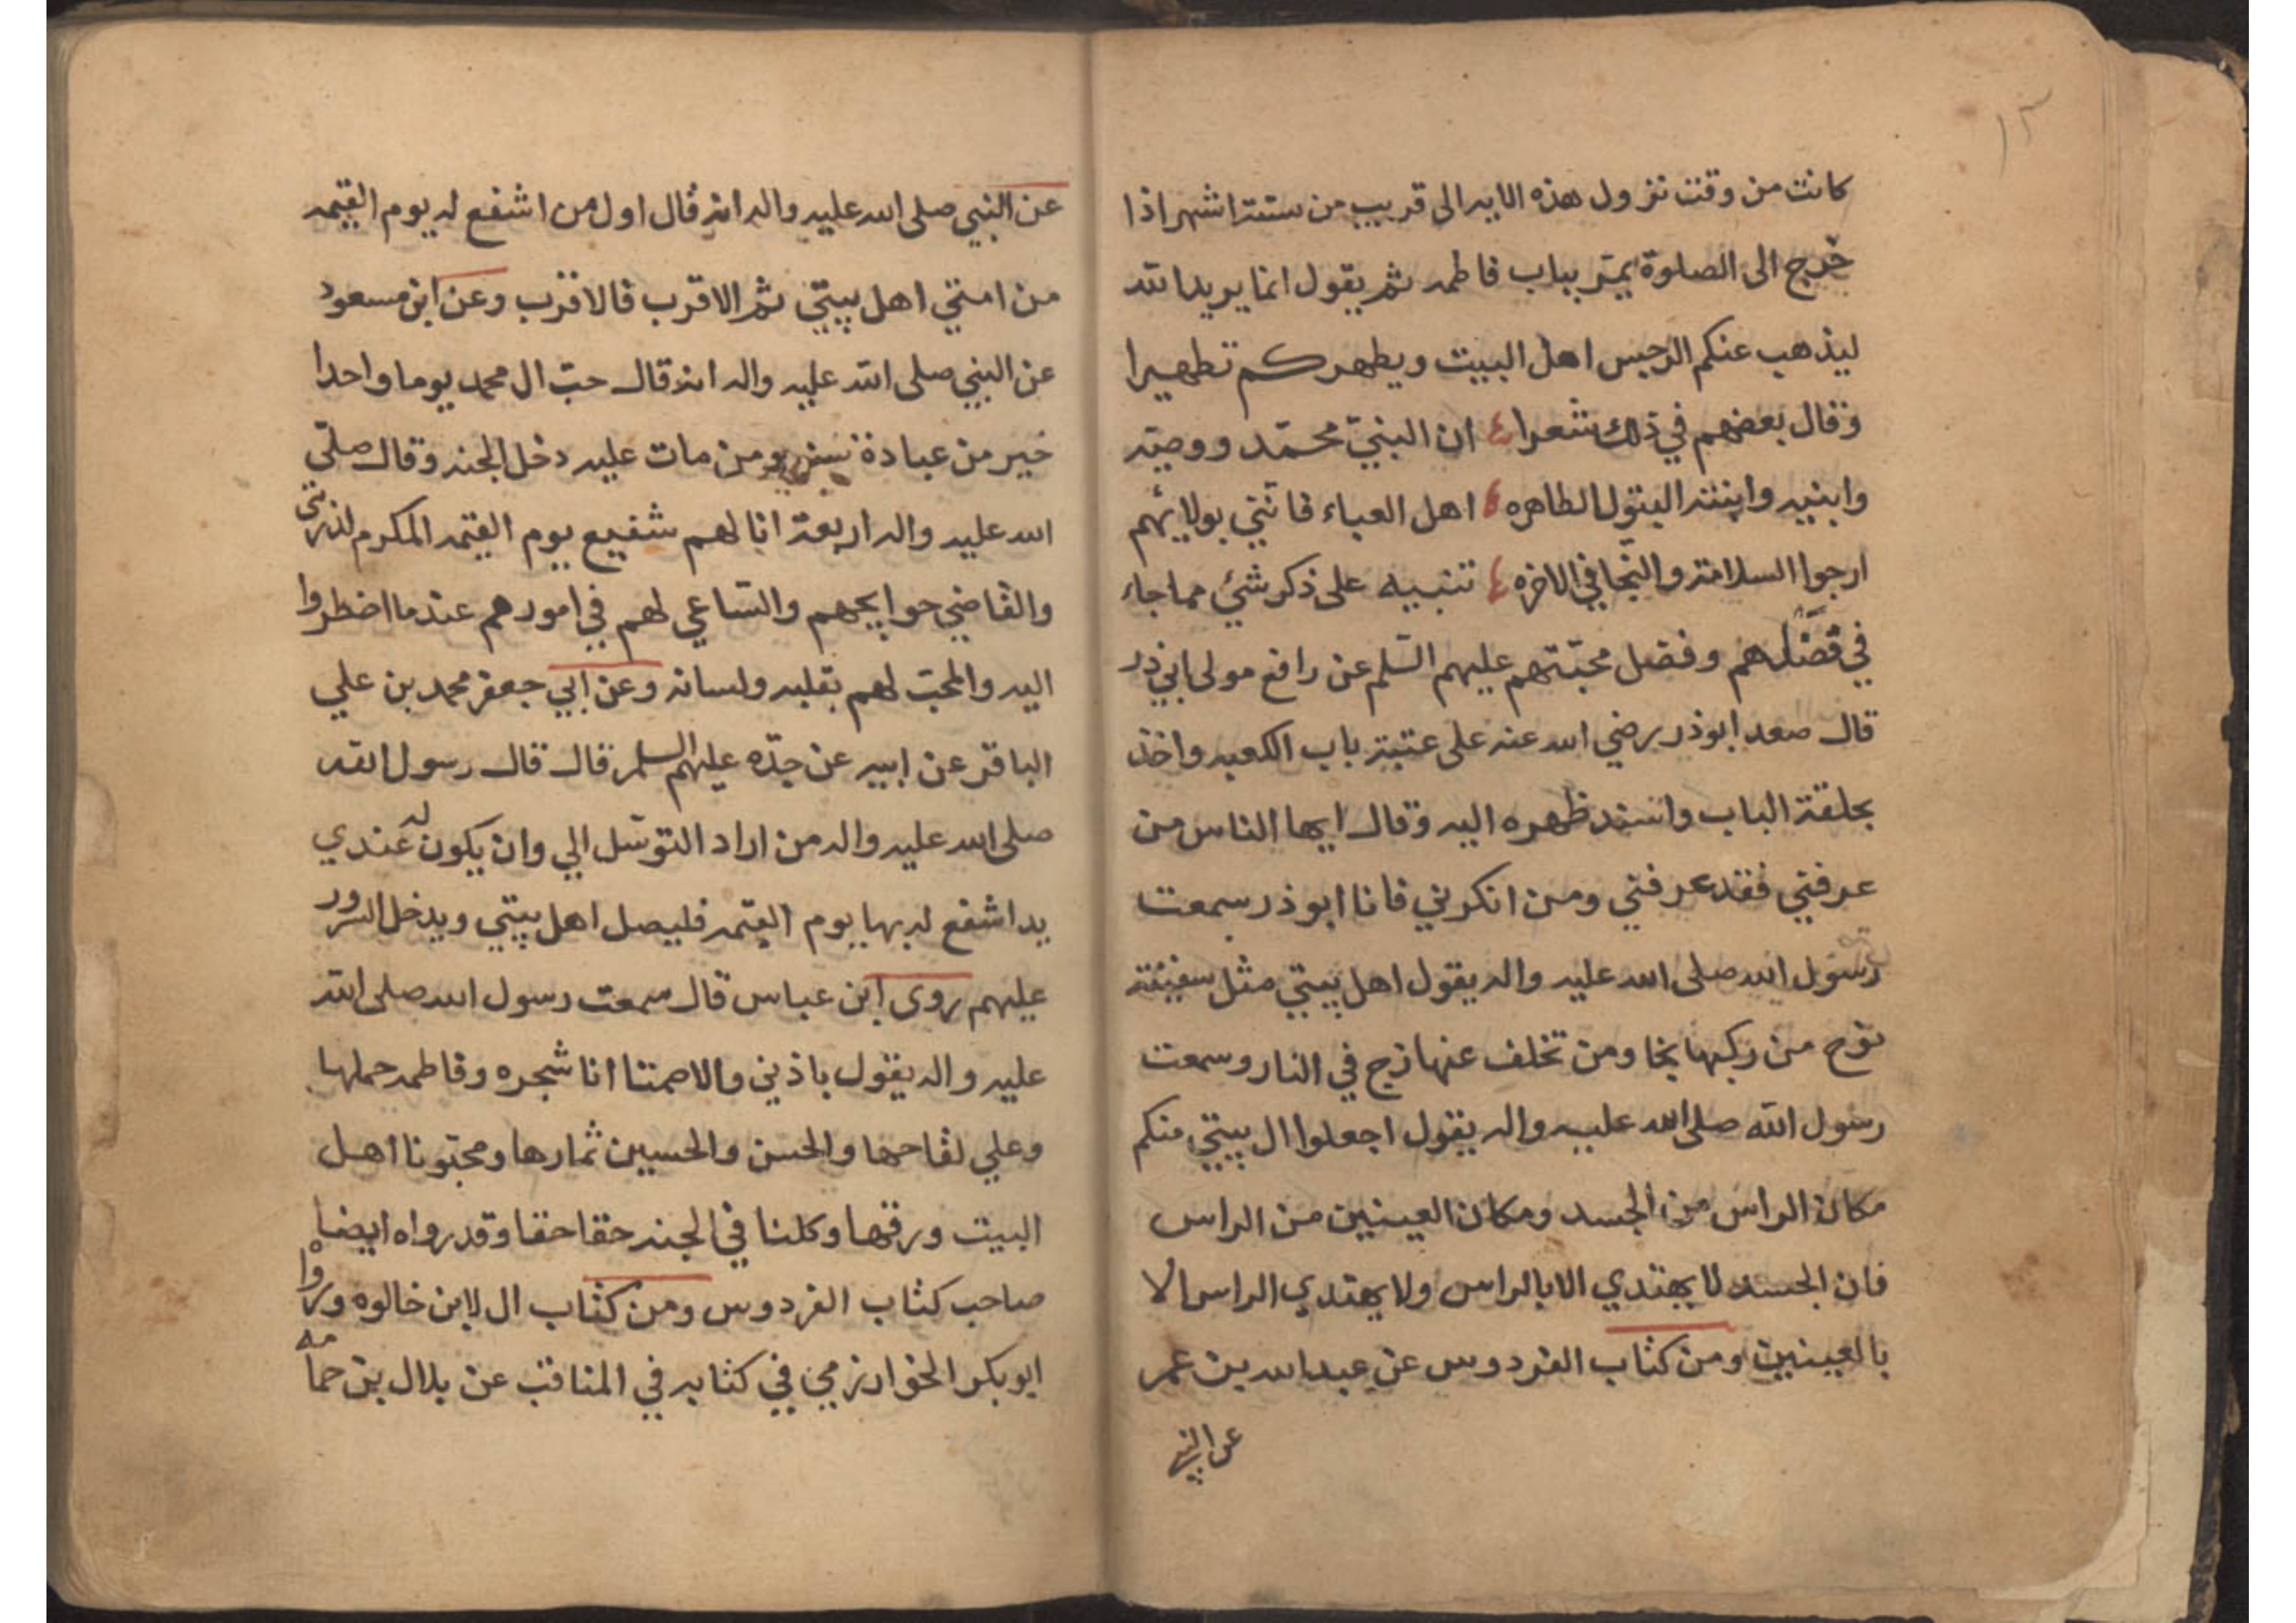 ١٢
كانت من وقت نزول هذه الايه الى قريب من ستة اشهر اذا
خرج الى الصلوة يمتر بباب فاطمه ثم يقول انما يريد الله
ليذهب عنكم الرجس اهل البيت ويطهركم تطهيرا
وقال بعضهم في ذلك شعرا ان النبيّ محمّد ووصيّه
وابنيه وابنته البتول الطاهره اهل العباء فانّني بولائهم
ارجوا السلامة والنّجا في الاخره تنبيه على ذكر شئ مما جاء
في فضلهم وفضل محبّتهم عليهم السّلم عن رافع مولى ابي ذر
قال صعد ابوذر رضي الله عنه على عتبة باب الكعبه واخذ
بحلقة الباب واسند ظهره اليه وقال ايها الناس من
عرفني فقد عرفني ومن انكرني فانا ابوذر سمعت
رسول الله صلى الله عليه واله يقول اهل بيتي مثل سفينة
نوح من ركبها نجا ومن تخلف عنها زج في النار وسمعت
رسول الله صلى الله عليه واله يقول اجعلوا ال بيتي منكم
مكان الراس من الجسد ومكان العينين من الراس
فان الجسد لا يهتدي الا بالراس ولا يهتدي الراس الا
بالعينين ومن كتاب الفردوس عن عبد الله بن عمر
عن النبي
عن النبي صلى الله عليه واله انه قال اول من اشفع له يوم القيمه
من امتي اهل بيتي ثم الاقرب فالاقرب وعن ابن مسعود
عن النبي صلى الله عليه واله انه قال حبّ ال محمد يوما واحدا
خير من عبادة سنه ومن مات عليه دخل الجنه وقال صلّى
الله عليه واله اربعة انا لهم شفيع يوم القيمه المكرم لذريتي
والقاضي حوايجهم والسّاعي لهم في امورهم عندما اضطروا
اليه والمحبّ لهم بقلبه ولسانه وعن ابي جعفر محمد بن علي
الباقر عن ابيه عن جدّه عليهم السلم قال قال رسول الله
صلى الله عليه واله من اراد التوسّل الي وان يكون له عندي
يد اشفع له بها يوم القيمه فليصل اهل بيتي ويدخل السرور
عليهم روى ابن عباس قال سمعت رسول الله صلى الله
عليه واله يقول باذني والا صمتا انا شجره وفاطمه حملها
وعلي لقاحها والحسن والحسين ثمارها ومحبّونا اهل
البيت ورقها وكلنا في الجنه حقا حقا وقد رواه ايضا
صاحب كتاب الفردوس ومن كتاب ال لابن خالوه ورواه
ابوبكر الخوارزمي في كتابه في المناقب عن بلال بن حمامه